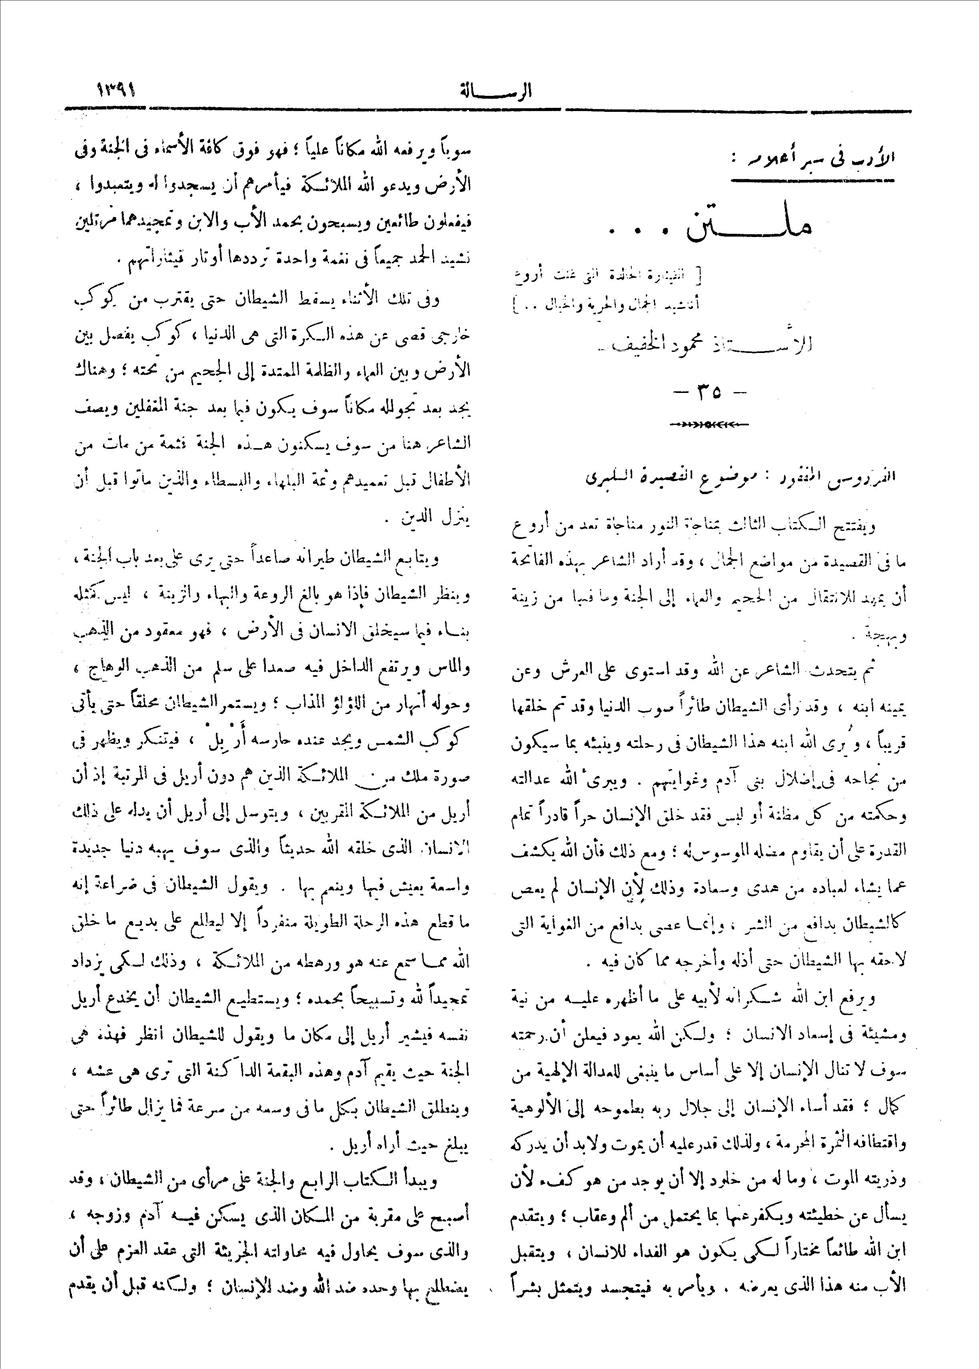 ١٣٩١
الرسالة
الأدب في سير أعلامه :
ملتن . . .
[ القيثارة الخالدة التي غنت أروع
أناشيد الجمال والحرية والخيال . . ]
للأستاذ محمود الخفيف
— ٣٥ —
الفردوس المفقود : موضوع القصيدة الكبرى
ويفتتح الكتاب الثالث بمناجاة النور مناجاة تعد من أروع
ما في القصيدة من مواضع الجمال ، وقد أراد الشاعر بهذه الفاتحة
أن يمهد للانتقال من الجحيم والعماء إلى الجنة وما فيها من زينة
وبهجة .
ثم يتحدث الشاعر عن الله وقد استوى على العرش وعن
يمينه ابنه ، وقد رأى الشيطان طائراً صوب الدنيا وقد تم خلقها
قريباً ، ويُرى الله ابنه هذا الشيطان في رحلته وينبئه بما سيكون
من نجاحه في إضلال بني آدم وغوايتهم . ويبرىء الله عدالته
وحكمته من كل مظنة أو لبس فقد خلق الإنسان حراً قادراً تمام
القدرة على أن يقاوم مضله الموسوس له ؛ ومع ذلك فأن الله يكشف
عما يشاء لعباده من هدى وسعادة وذلك لأن الإنسان لم يعص
كالشيطان بدافع من الشر ، وإنما عصى بدافع من الغواية التي
لاحقه بها الشيطان حتى أذله وأخرجه مما كان فيه .
ويرفع ابن الله شكرانه لأبيه على ما أظهره عليه من نية
ومشيئة في إسعاد الانسان ؛ ولكن الله يعود فيعلن أن رحمته
سوف لا تنال الإنسان إلا على أساس ما ينبغي للعدالة الإلهية من
كمال ؛ فقد أساء الإنسان إلى جلال ربه بطموحه إلى الألوهية
واقتطافه الثمرة المحرمة ، ولذلك قدر عليه أن يموت ولابد أن يدركه
وذريته الموت ، وما له من خلود إلا أن يوجد من هو كفء لأن
يسأل عن خطيئته ويكفر عنها بما يحتمل من ألم وعقاب ؛ ويتقدم
ابن الله طائعاً مختاراً لكي يكون هو الفداء للانسان ، ويتقبل
الأب منه هذا الذي يعرضه . ويأمر به فيتجسد ويتمثل بشراً
سوياً ويرفعه الله مكاناً علياً ؛ فهو فوق كافة الأسماء في الجنة وفي
الأرض ويدعو الله الملائكة فيأمرهم أن يسجدوا له ويتعبدوا ،
فيفعلون طائعين ويسبحون بحمد الأب والابن وتمجيدهما مرتلين
نشيد الحمد جميعاً في نغمة واحدة ترددها أوتار قيثاراتهم .
وفي تلك الأثناء يسقط الشيطان حتى يقترب من كوكب
خارجي قصي عن هذه الكرة التي هي الدنيا ، كوكب يفصل بين
الأرض وبين العماء والظلمة الممتدة إلى الجحيم من تحته ؛ وهناك
يجد بعد تجوله مكاناً سوف يكون فيما بعد جنة المغفلين ويصف
الشاعر هنا من سوف يسكنون هذه الجنة فثمة من مات من
الأطفال قبل تعميدهم وثمة البلهاء والبسطاء والذين ماتوا قبل أن
ينزل الدين .
ويتابع الشيطان طيرانه صاعداً حتى يرى على بعد باب الجنة ،
وينظر الشيطان فإذا هو بالغ الروعة والبهاء والزينة ، ليس كمثله
بناء فيما سيخلق الانسان في الأرض ، فهو معقود من الذهب
والماس ويرتفع الداخل فيه صعدا على سلم من الذهب الوهاج ،
وحوله أنهار من اللؤلؤ المذاب ؛ ويستمر الشيطان محلقاً حتى يأتي
كوكب الشمس ويجد عنده حارسه أريل ، فيتنكر ويظهر في
صورة ملك من الملائكة الذين هم دون أريل في المرتبة إذ أن
أريل من الملائكة المقربين ، ويتوسل إلى أريل أن يدله على ذلك
الانسان الذي خلقه الله حديثاً والذي سوف يهبه دنيا جديدة
واسعة يعيش فيها وينعم بها . ويقول الشيطان في ضراعة إنه
ما قطع هذه الرحلة الطويلة منفرداً إلا ليطلع على بديع ما خلق
الله مما سمع عنه هو ورهطه من الملائكة ، وذلك لكي يزداد
تمجيداً لله وتسبيحاً بحمده ؛ ويستطيع الشيطان أن يخدع أريل
نفسه فيشير أريل إلى مكان ما ويقول للشيطان انظر فهذه هي
الجنة حيث يقيم آدم وهذه البقعة الداكنة التي ترى هي عشه ،
وينطلق الشيطان بكل ما في وسعه من سرعة فما يزال طائراً حتى
يبلغ حيث أراه أريل .
ويبدأ الكتاب الرابع والجنة على مرأى من الشيطان ، وقد
أصبح على مقربة من المكان الذي يسكن فيه آدم وزوجه ،
والذي سوف يحاول فيه محاولته الجريئة التي عقد العزم على أن
يضطلع بها وحده ضد الله وضد الإنسان ؛ ولكنه قبل أن يقدم